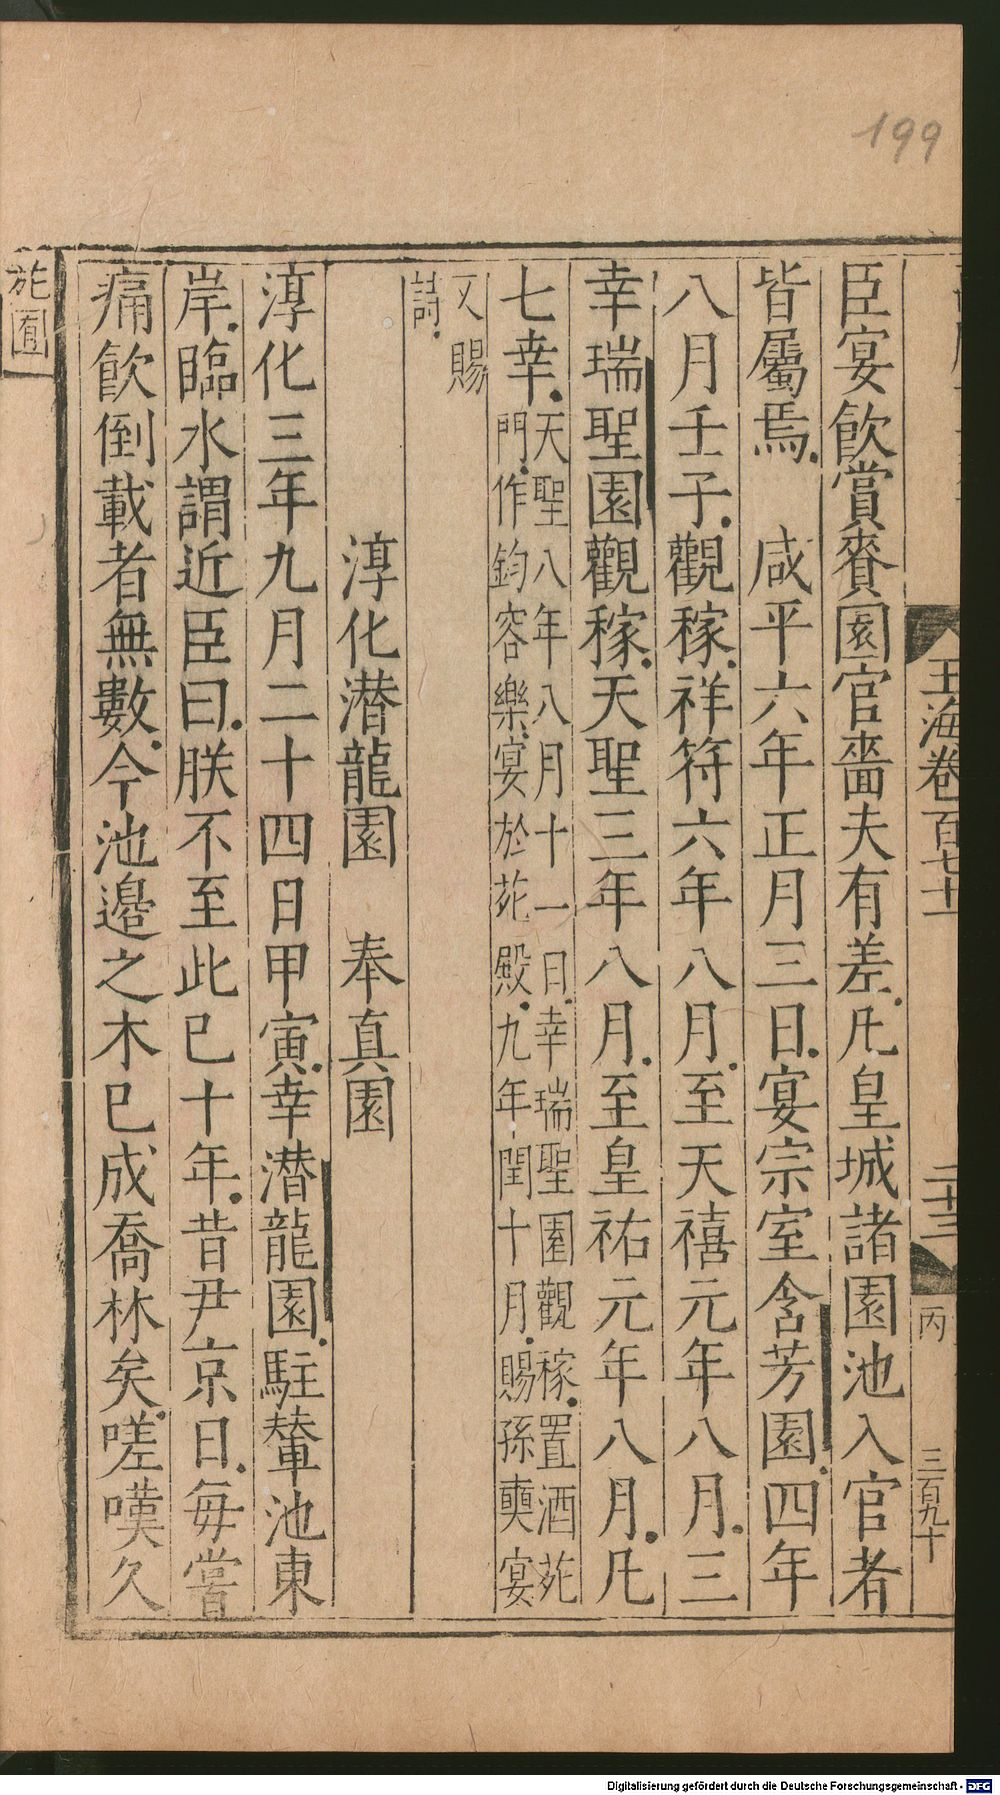 199
玉海卷百七十一
二十三
丙
三百九十
臣宴飲賞賚園官嗇夫有差凡皇城諸園池入官者
皆屬焉　咸平六年正月三日宴宗室含芳園四年
八月壬子觀稼祥符六年八月至天禧元年八月三
幸瑞聖園觀稼天聖三年八月至皇祐元年八月凡
七幸天聖八年八月十一日幸瑞聖園觀稼置酒苑
門作鈞容樂宴於苑殿九年閏十月賜孫奭宴
又賜
詩
淳化潛龍園　奉真園
淳化三年九月二十四日甲寅幸潛龍園駐輦池東
岸臨水謂近臣曰朕不至此已十年昔尹京日每嘗
痛飲倒載者無數今池邉之木已成喬林矣嗟嘆久
苑囿
Digitalisierung gefördert durch die Deutsche Forschungsgemeinschaft - DFG